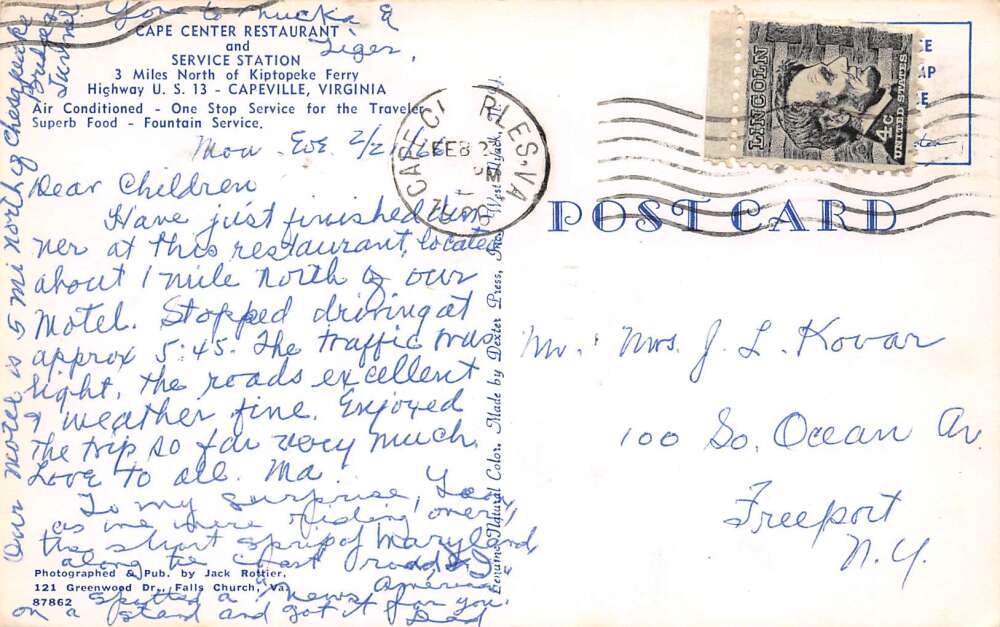 CAPE CENTER RESTAURANT
and
SERVICE STATION
3 Miles North of Kiptopeke Ferry
Highway U. S. 13 - CAPEVILLE, VIRGINIA
Air Conditioned - One Stop Service for the Traveler
Superb Food - Fountain Service.
Mon. Eve. 2/21/66
Dear Children
Have just finished din
ner at this restaurant, located
about 1 mile North of our
Motel. Stopped driving at
approx 5:45. The traffic was
light, the roads excellent
& weather fine. Enjoyed
the trip so far very much.
Love to all. Ma.
To my surprise,
as we were riding over
the short strip of Maryland,
along the coast road, I
spotted a "News American"
on a stand and got it for you.
Dad
Love to Mucka &
Tiger.
Our Motel is 5 mi North of Chesapeake
Bridge
Tunnel
Photographed & Pub. by Jack Rottier,
121 Greenwood Dr., Falls Church, Va.
87862
Genuine Natural Color. Made by Dexter Press, Inc. West Nyack, N. Y.
CAPE CHARLES, VA
FEB 2
PM
LINCOLN
4c
UNITED STATES
POST CARD
Mr. & Mrs. J. L. Kovar
100 So. Ocean Av.
Freeport
N.Y.